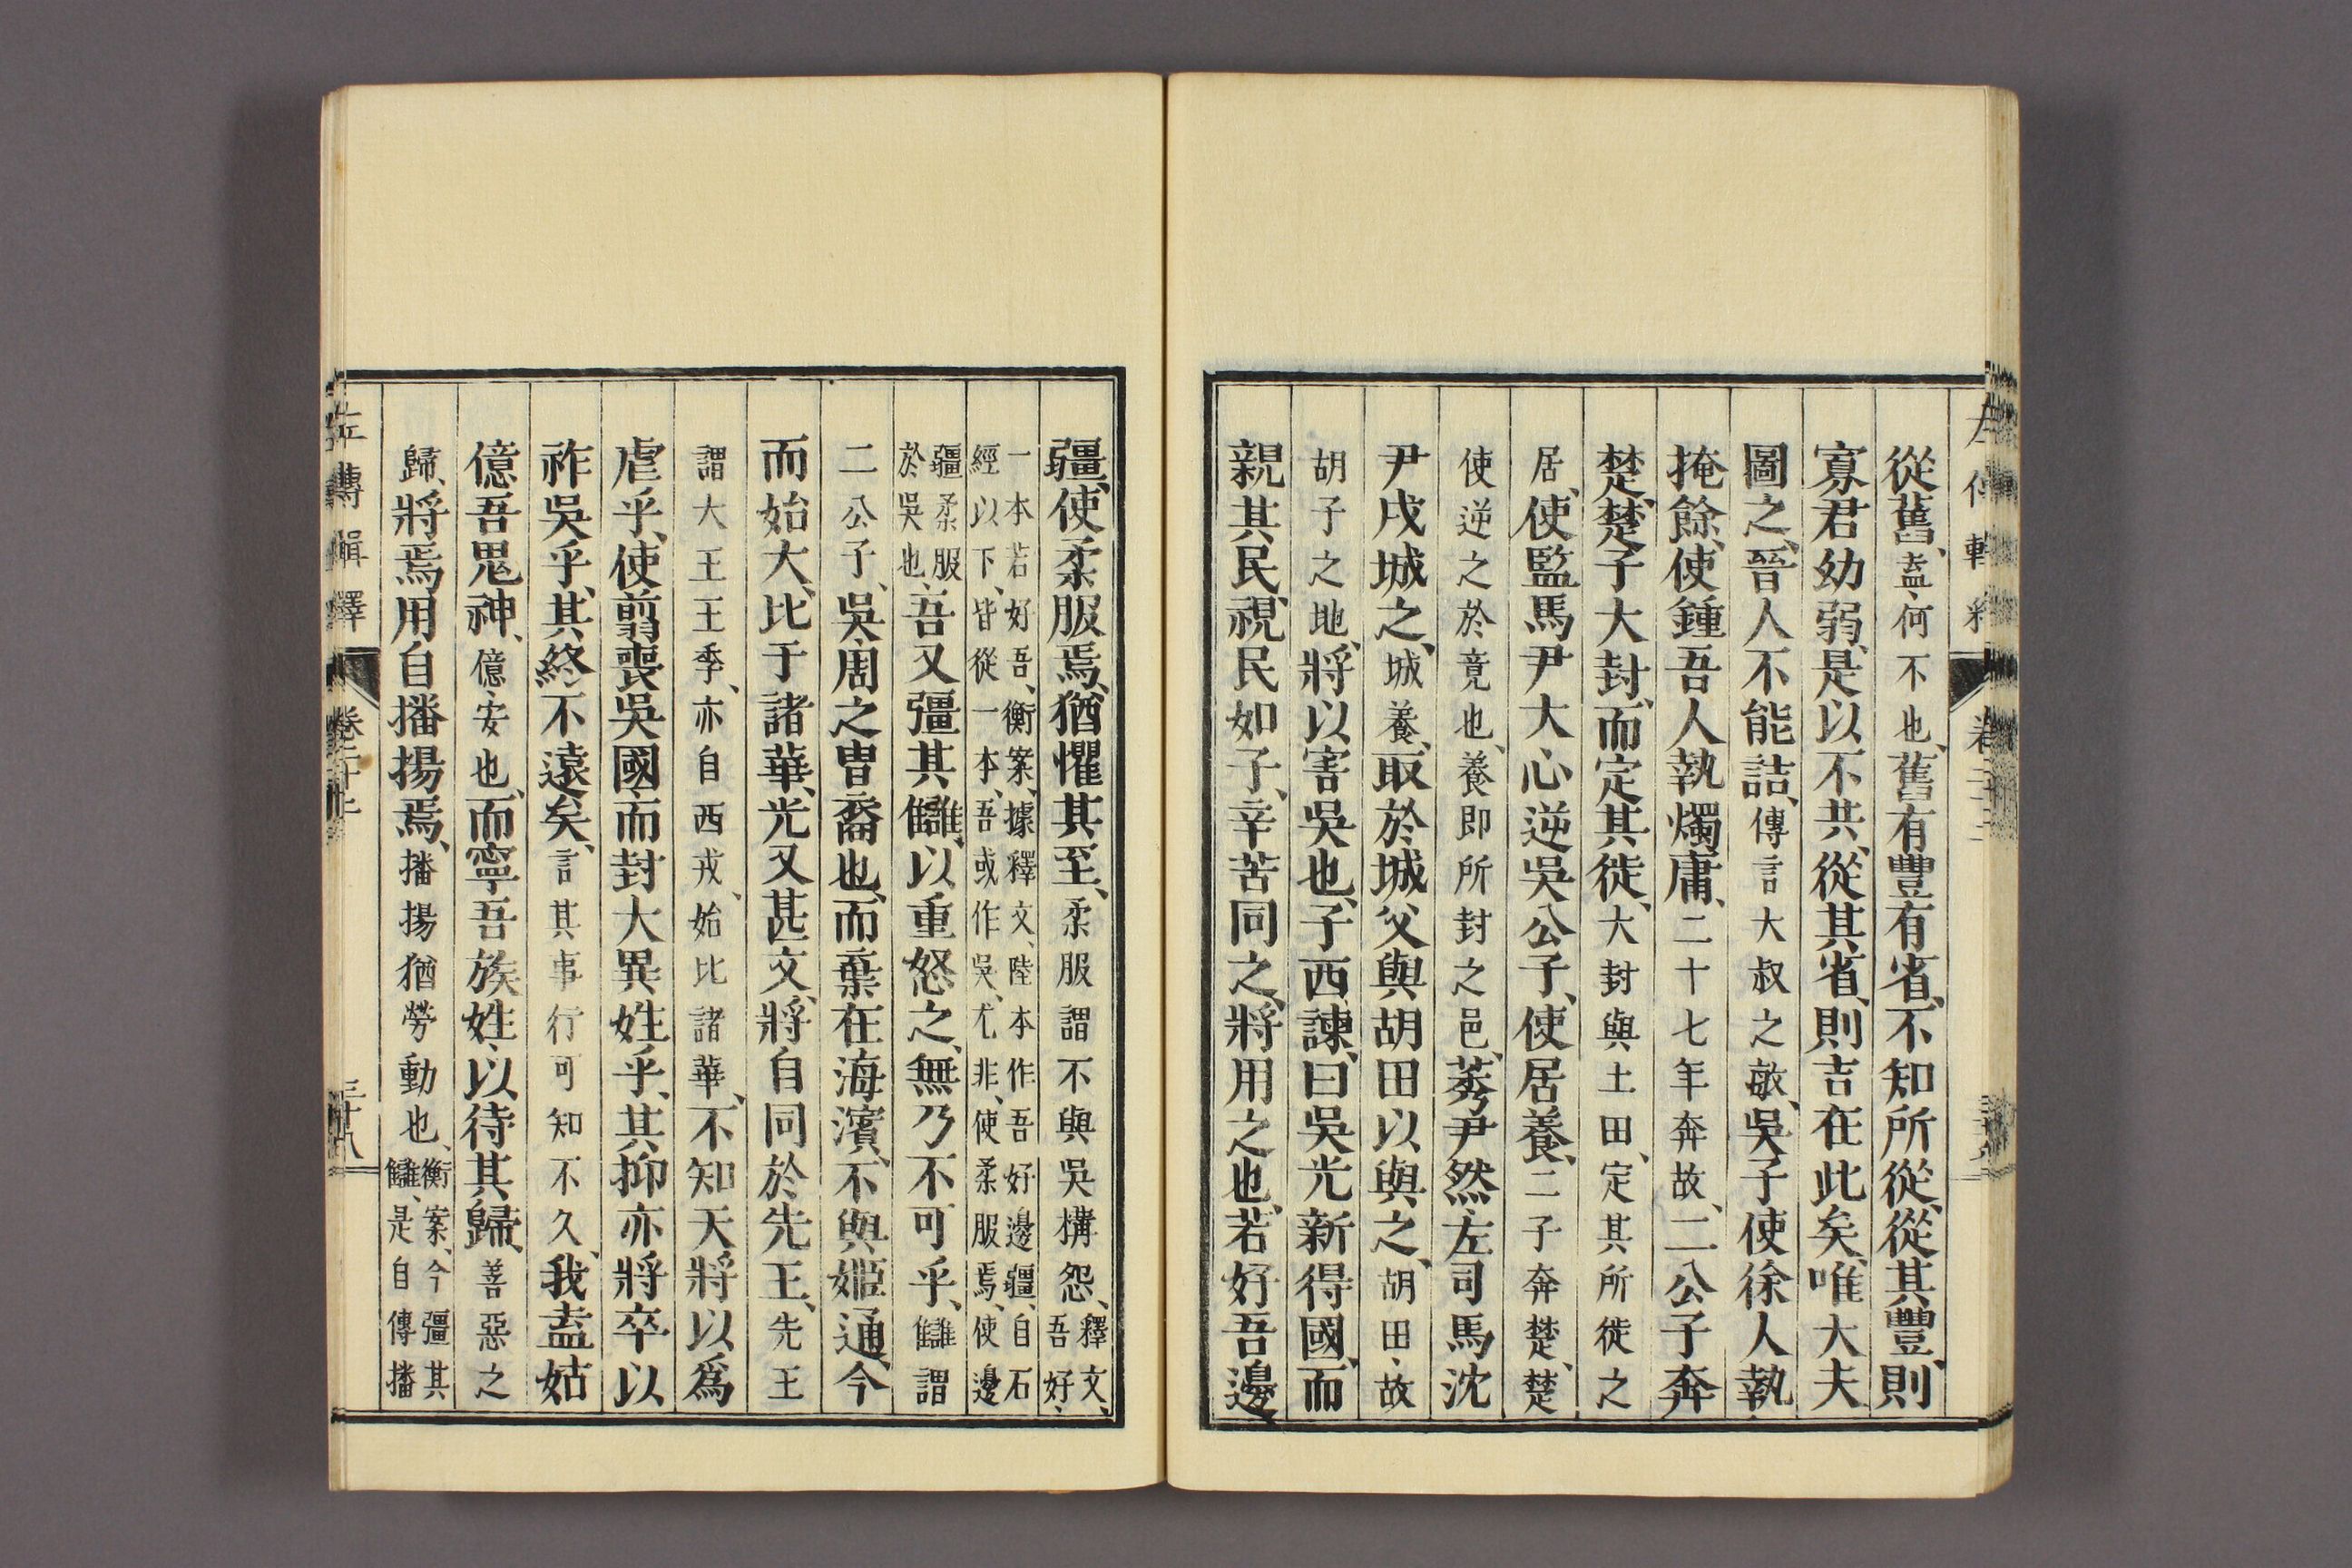 從舊、盍、何不也、舊有豐有省、不知所從、從其豐、則
寡君幼弱、是以不共、從其省、則吉在此矣、唯大夫
圖之、晉人不能詰、傳言大叔之敏、吳子使徐人執
掩餘、使鍾吾人執燭庸、二十七年奔故、二公子奔
楚、楚子大封、而定其徙、大封與土田、定其所徙之
居、使監馬尹大心逆吳公子、使居養、二子奔楚、楚
使逆之於竟也、養即所封之邑、莠尹然、左司馬沈
尹戌城之、城養、取於城父與胡田以與之、胡田、故
胡子之地、將以害吳也、子西諫、曰吳光新得國、而
親其民、視民如子、辛苦同之、將用之也、若好吾邊
疆、使柔服焉、猶懼其至、柔服謂不與吳構怨、釋文、吾好、
一本若好吾、衡案、據釋文、陸本作吾好邊疆、自石
經以下、皆從一本、吾或作吳、尤非、使柔服焉、使邊
疆柔服
於吳也、吾又彊其讎、以重怒之、無乃不可乎、讎謂
二公子、吳周之冑裔也、而棄在海濱、不與姬通、今
而始大、比于諸華、光又甚文、將自同於先王、先王
謂大王王季、亦自西戎、始比諸華、不知天將以爲
虐乎、使翦喪吳國、而封大異姓乎、其抑亦將卒以
祚吳乎、其終不遠矣、言其事行可知不久、我盍姑
億吾鬼神、億、安也、而寧吾族姓、以待其歸、善惡之
歸、將焉用自播揚焉、播揚猶勞動也、衡案、今彊其
讎、是自傳播
左傳輯釋
卷二十二
三十八